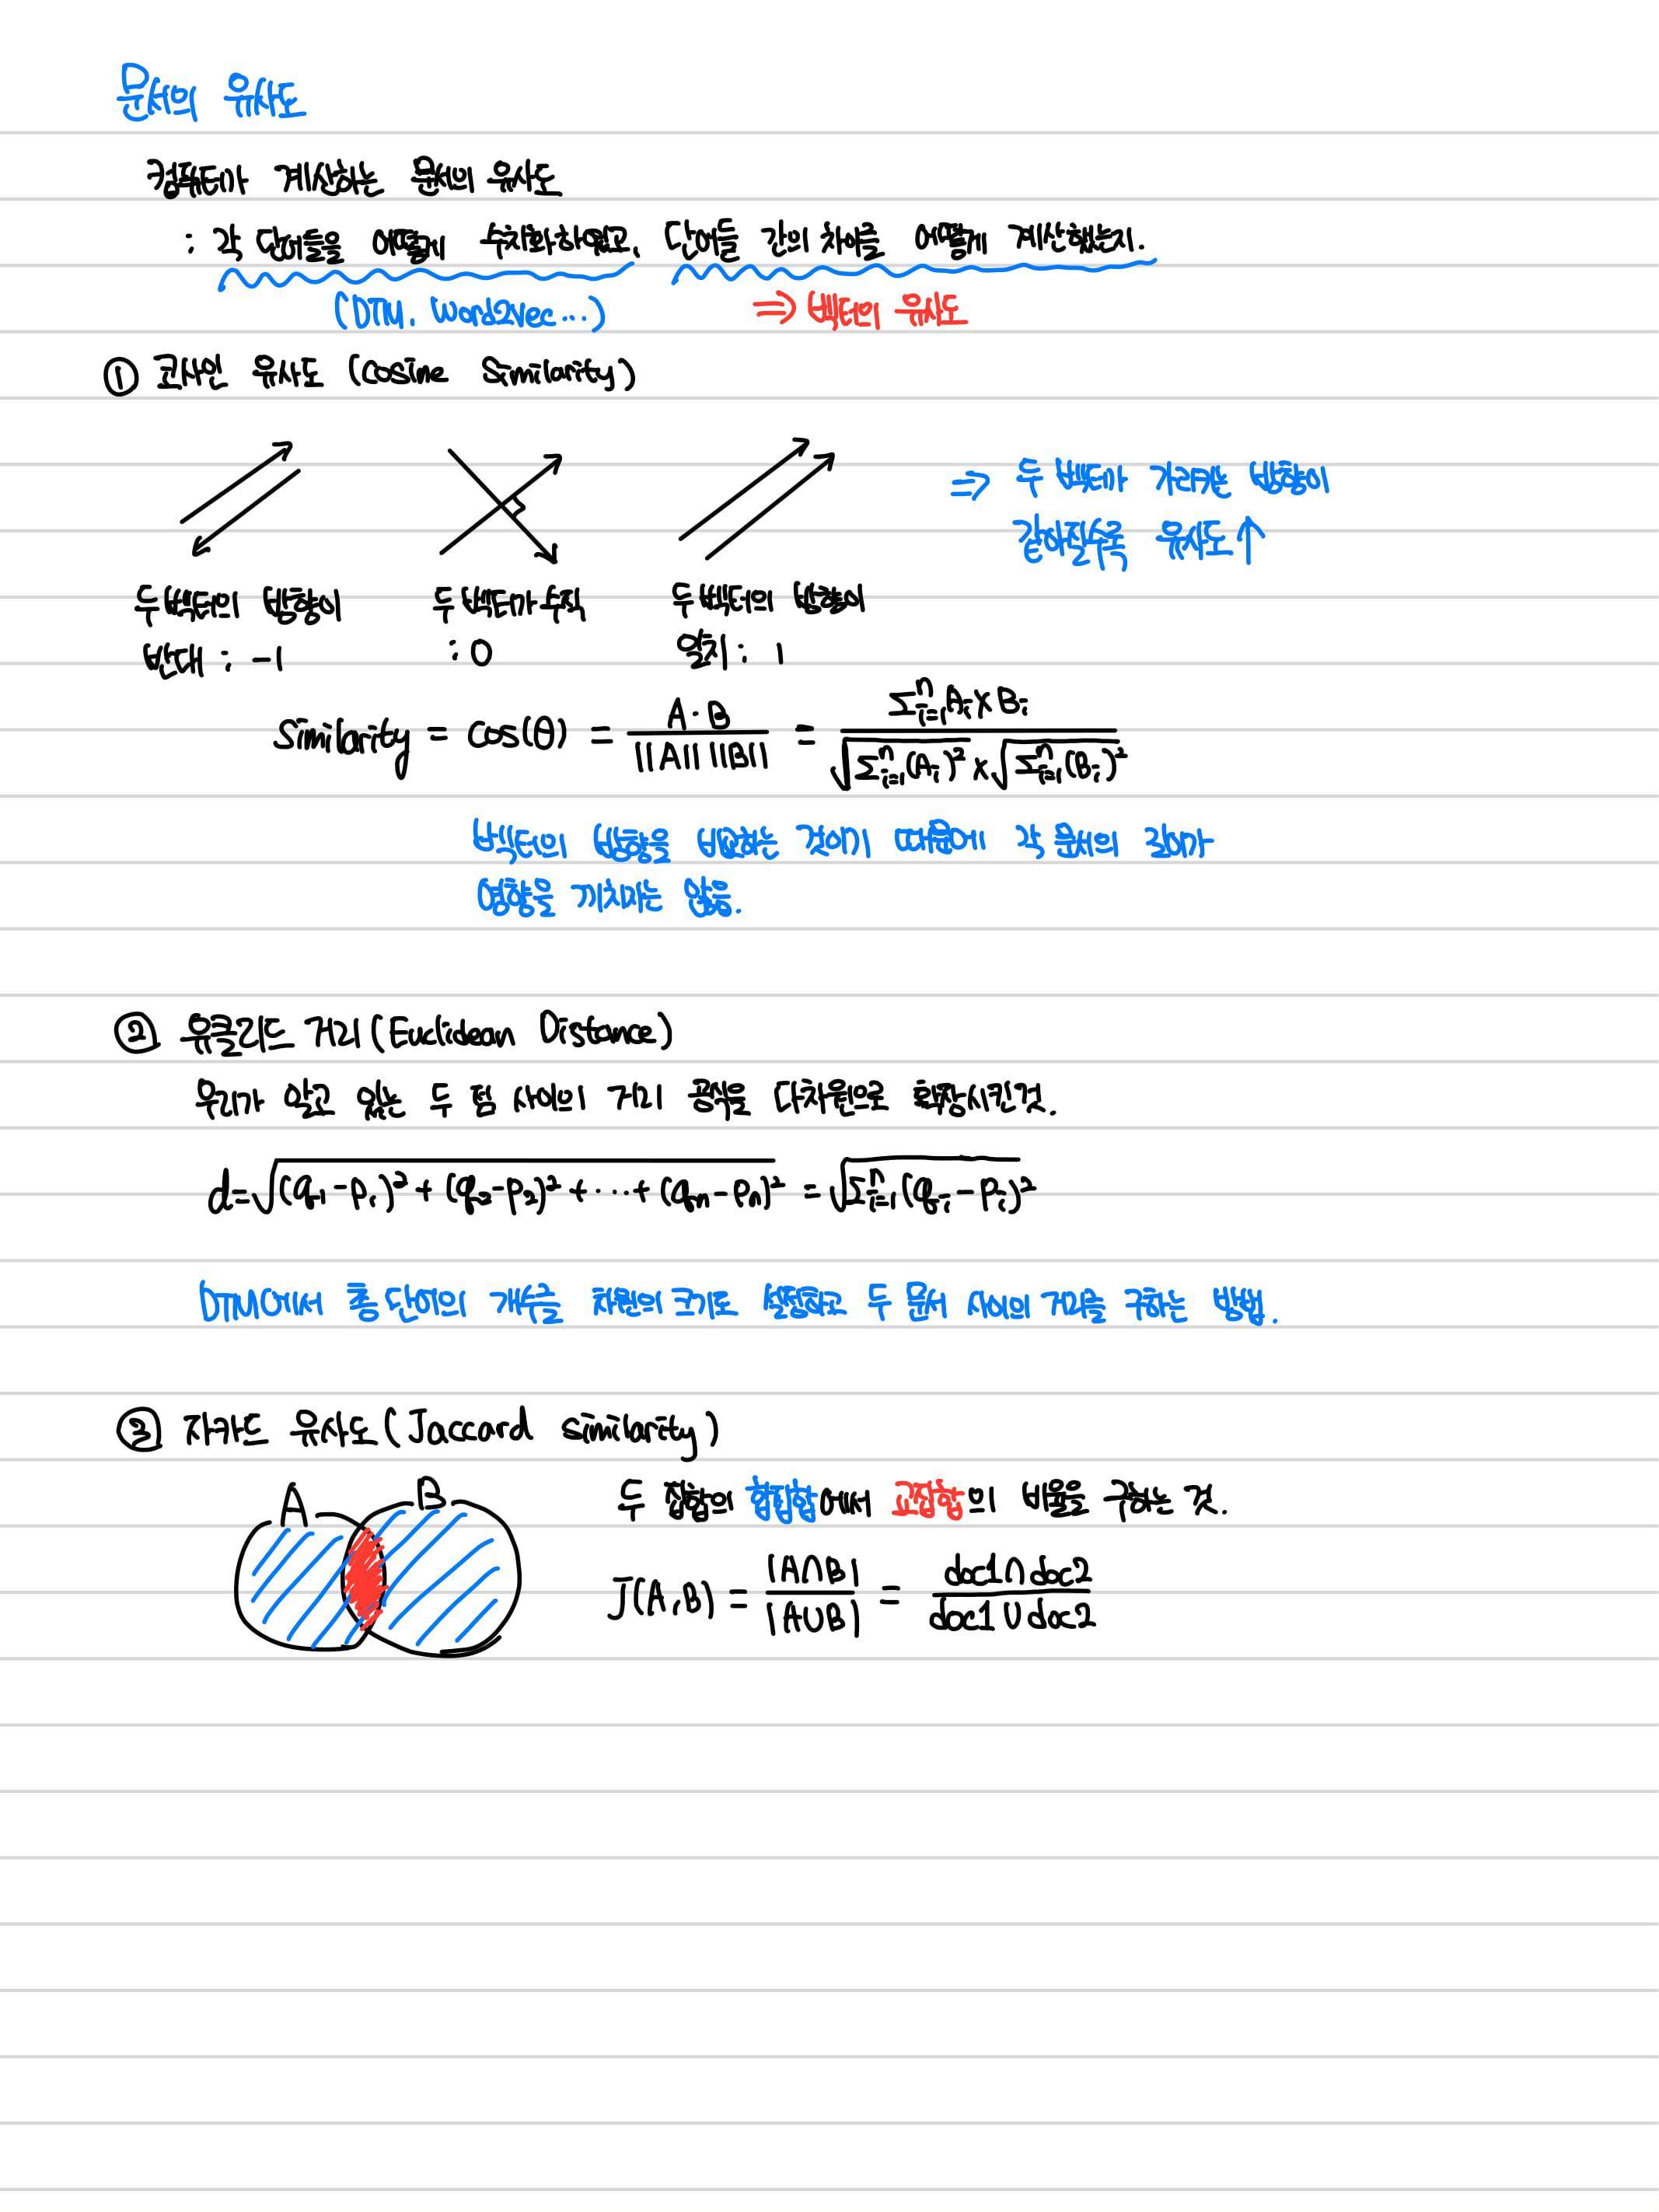 문서의 유사도
컴퓨터가 계산하는 문서의 유사도
: 각 단어들을 어떻게 수치화하였고, 단어들 간의 차이를 어떻게 계산했는지.
(DTM, Word2Vec...) ⇒ 벡터의 유사도
① 코사인 유사도 (Cosine Similarity)
⇒ 두 벡터가 가리키는 방향이
같아질수록 유사도↑
두 벡터의 방향이 반대 : -1
두 벡터가 수직 : 0
두 벡터의 방향이 일치 : 1
Similarity = cos(θ) = A·B / ||A|| ||B|| = Σⁿᵢ₌₁Aᵢ×Bᵢ / √Σⁿᵢ₌₁(Aᵢ)² × √Σⁿᵢ₌₁(Bᵢ)²
벡터의 방향을 비교하는 것이기 때문에 각 문서의 길이가
영향을 끼치지는 않음.
② 유클리드 거리(Euclidean Distance)
우리가 알고 있는 두 점 사이의 거리 공식을 다차원으로 확장시킨것.
d=√(q₁-p₁)²+(q₂-p₂)²+···+(qₙ-pₙ)² = √Σⁿᵢ₌₁(qᵢ-pᵢ)²
DTM에서 총 단어의 개수를 차원의 크기로 설정하고 두 문서 사이의 거리를 구하는 방법.
③ 자카드 유사도(Jaccard similarity)
A B
두 집합의 합집합에서 교집합의 비율을 구하는 것.
J(A,B) = |A∩B| / |A∪B| = doc1∩doc2 / doc1∪doc2